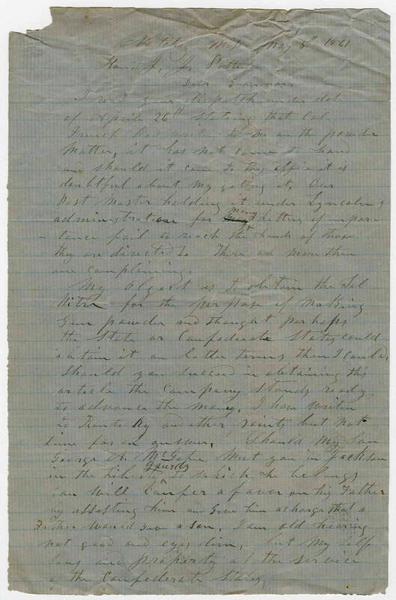 Miss May 5th 1861
Hon. J. J. Pettus
Dear Governor
I recd your dispatch under date
of April 26th stating that Col.
had written to me on the powder
matter, it has not come to hand
and should it come to this office it is
doubtful about my getting it. Our
Post Master holding it under Lyncoln's
administration for many letters of impor
tance fail to reach the hands of those
they are directed to. There are more than
me complaining.
My object is to obtain the Sal
Nitre for the purpose of making
Gun powder and thought perhaps
the State or Confederate States could
obtain it on better terms than I could,
should you succeed in obtaining this
article the Company stands ready
to advance the money. I have written
to Kentucky another rout but not
time for an answer. Should my Son
George A. McGehee meet you in Jackson
in the Guards to which he belongs
you will confer a favor on his Father
by assisting him and Give him a charge that a
Father would give a son. I am old hearing
not good and eyes dim, but my self
sons and property at the service
of the Confederate States